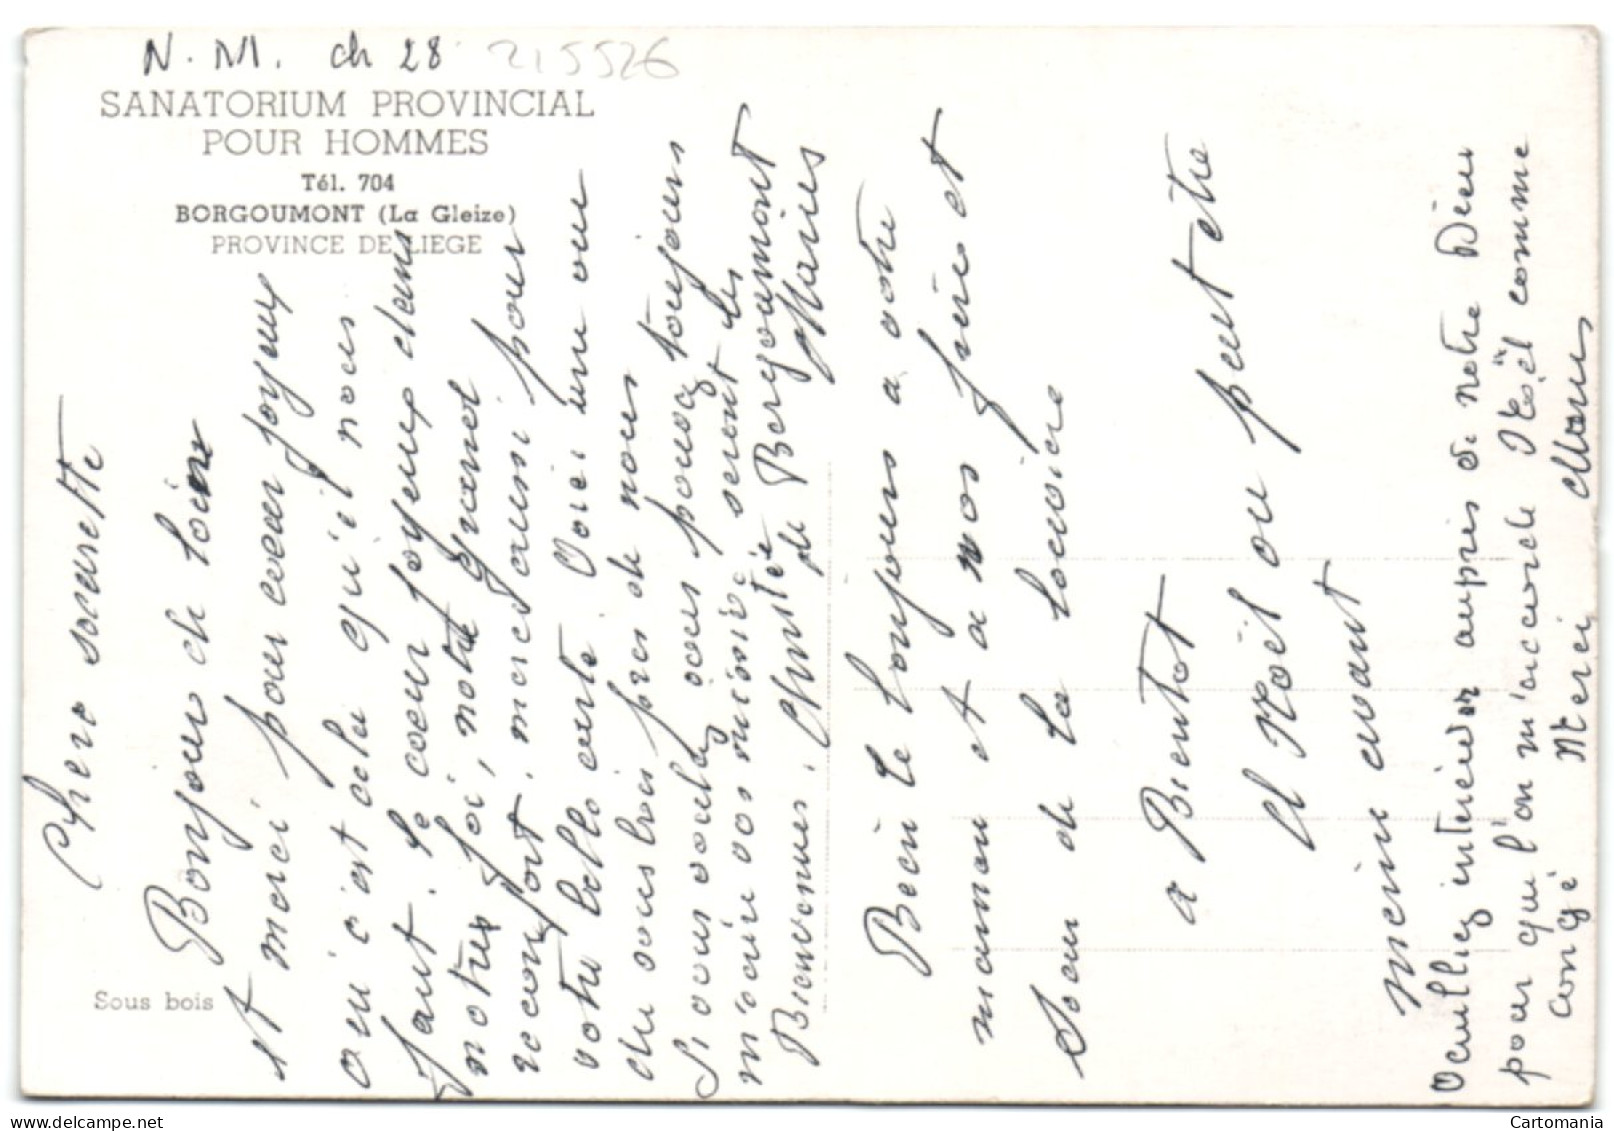 N. M. ch 28 215526
SANATORIUM PROVINCIAL
POUR HOMMES
Tél. 704
BORGOUMONT (La Gleize)
PROVINCE DE LIEGE
Sous bois
Chere soeurette
Bonjour de loin
et merci pour coeur joyeux
oui c'est cela qu'il nous
faut. le coeur joyeux dans
notre foi, notre grand
reconfort. merci aussi pour
votre belle carte. Voici une vue
du vous lrai pres de nous
Si vous voulez vous pouvez toujours
m'ecrire vos missive seront les
Bienvenues. Christée de Bergoumont
Marius
Bien le bonjours a votre
maman et a nos frère et
Soeur de la louvière
a Bientot
et Noël ou peut être
meme avant
Veuillez interceder aupres de notre Dieu
pour que l'on m'accorde Noël comme
congé Merci Marius